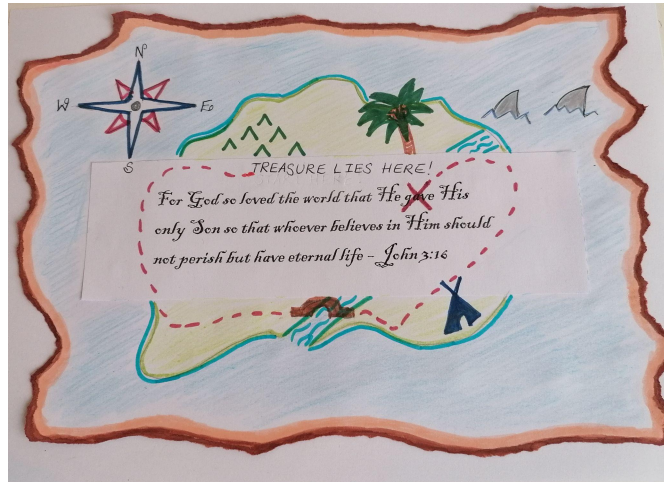 N
W E
S
TREASURE LIES HERE!
For God so loved the world that He gave His
only Son so that whoever believes in Him should
not perish but have eternal life – John 3:16